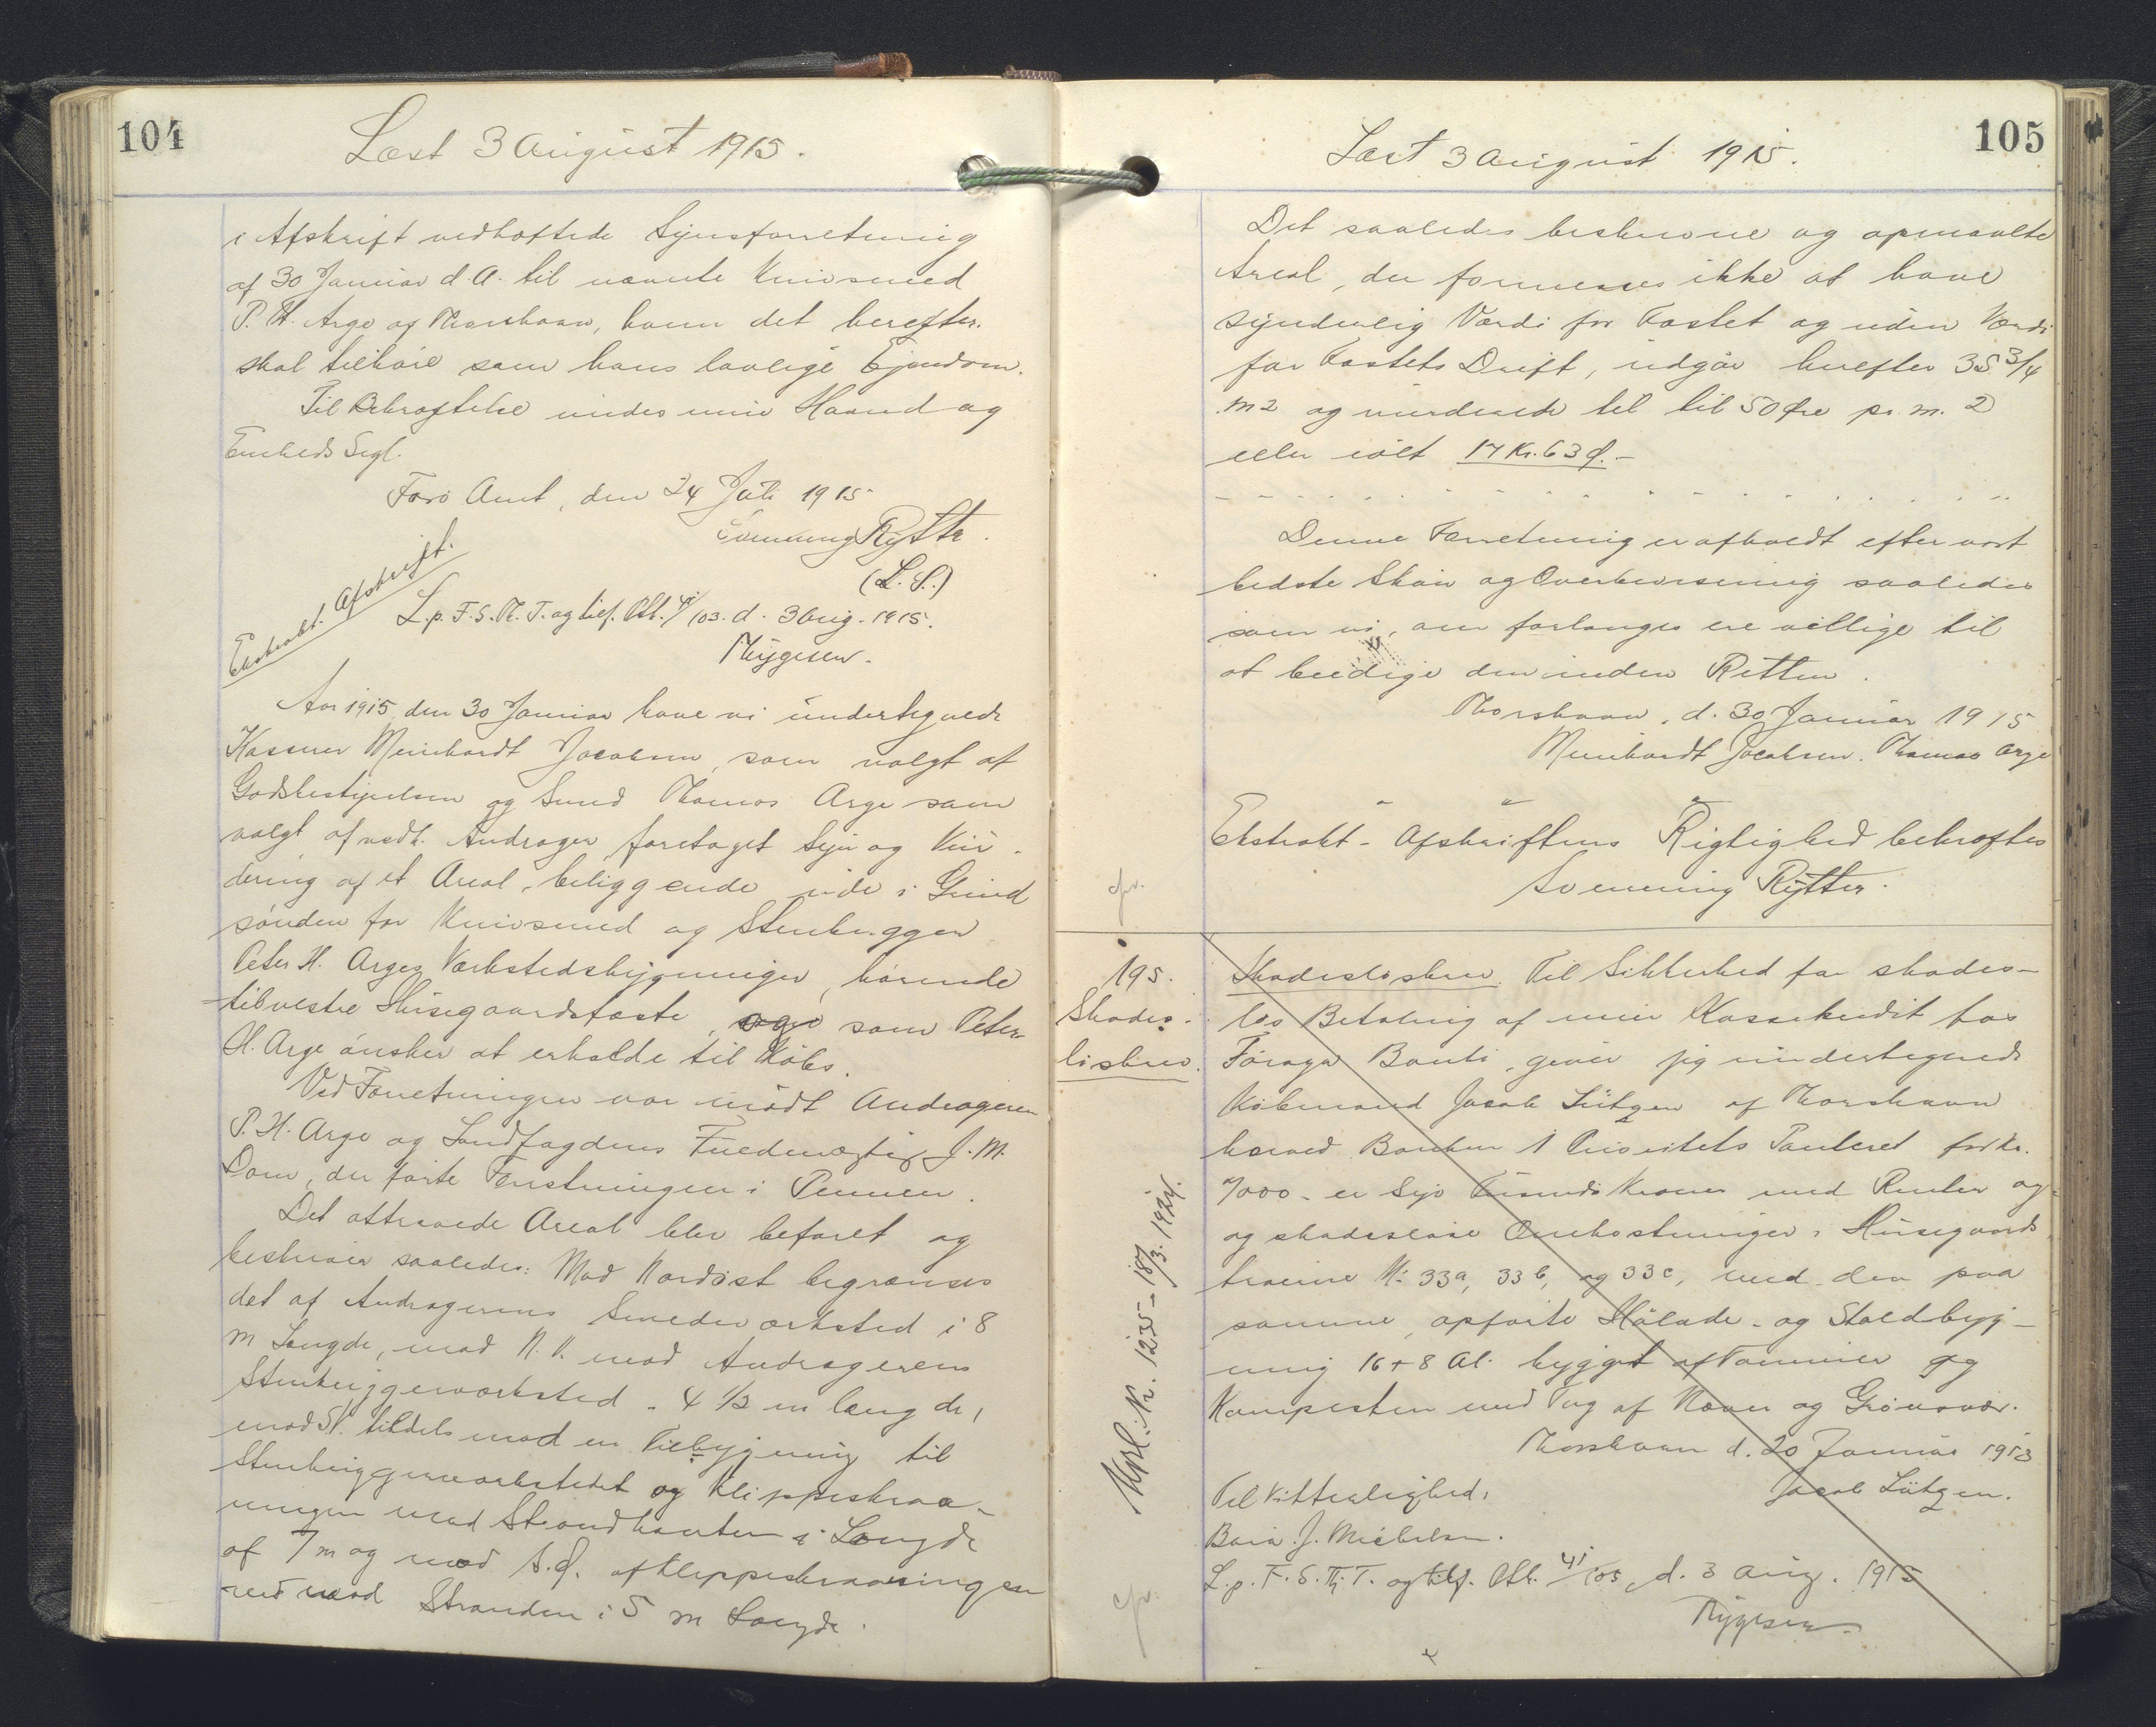 104
Læst 3 August 1915.
i Afskrift vedhæftede Synsforretning
af 30 Januar d. A. til nævnte Knivsmed
P. H. Arge af Thorshavn, ham det herefter
skal tilhøre som hans lovlige Ejendom.
Til Bekræftelse under min Haand og
Embeds Segl.
Færø Amt, den 24 Juli 1915
Svenning Rytter.
(L. S.)
Ekstrakt. Afskrift.
L. p. F. S. Th. T. og tilf. Ptb. 41/103. d. 3 Aug. 1915.
Thygesen.
Aar 1915 den 30 Januar have vi undertegnede
Kasserer Meinhardt Jacobsen, som valgt af
Godsbestyrelsen og Smed Thomas Arge som
valgt af vedk. Andrager, foretaget Syn og Vur-
dering af et Areal, beliggende inde i Grind
sønden for Knivsmed og Stenhugger
Peter H. Arges Værkstedsbygninger, hørende
til vestre Husegaardsfæste, som Peter
H. Arge ønsker at erholde til Købs.
Ved Forretningen var mødt Andrageren
P. H. Arge og Landfogdens Fuldmægtig J. M.
Dam, der førte Forretningen i Pennen.
Det attraaede Areal blev befaret og
beskreven saaledes: Mod Nordøst begrænses
det af Andragerens Smedeværksted i 8
m Længde, mod N. V. mod Andragerens
Stenhuggerværksted - 4 1/2 m længde,
mod SV. tildels mod en Tilbygning til
Stenhuggerværkstedet og Klippeskraa-
ningen mod Strandkanten i Længde
af 7 m og mod S.Ø. af Klippeskraaningen
ned mod Stranden i 5 m Længde.
105
Læst 3 August 1915.
Det saaledes beskrevne og opmaalte
Areal, der formenes ikke at have
synderlig Værdi for Fæstet og uden Værdi
for Fæstets Drift, udgør herefter 35 3/4
m2 og vurderede det til 50 Øre pr. m. 2
eller ialt 17 Kr. 63 Ø. -
Denne Forretning er afholdt efter vort
bedste Skøn og Overbevisning saaledes
som vi, om forlanges ere villige til
at beedige den inden Retten.
Thorshavn, d. 30 Januar 1915
Meinhardt Jacobsen. Thomas Arge
Ekstrakt-Afskriftens Rigtighed bekræftes
Svenning Rytter.
195.
Skades-
løsbrev.
Skadesløsbrev. Til Sikkerhed for skades-
løs Betaling af min Kassekredit hos
Føroya Banki, giver jeg undertegnede
Købmand Jacob Lützen af Thorshavn
herved Banken 1 Prioritets Panteret for Kr.
7000 - er Syv Tusinde Kroner med Renter og
og skadesløse Omkostninger i Husegaards
trøerne No 33a, 33b, og 33c, med den paa
samme, opførte Hølade- og Staldbyg-
ning 16 + 8 Al. bygget af Tømmer og
Kampesten med Tag af Næver og Grønsvær.
Thorshavn d. 20 Januar 1913
Jacob Lützen.
Til Vitterlighed,
J. Michelsen.
L. p. F. S. Th. T. og tilf. Ptb. 41/105, d. 3 Aug. 1915
Thygesen.
Nr. 1235 - 18/3. 1924.